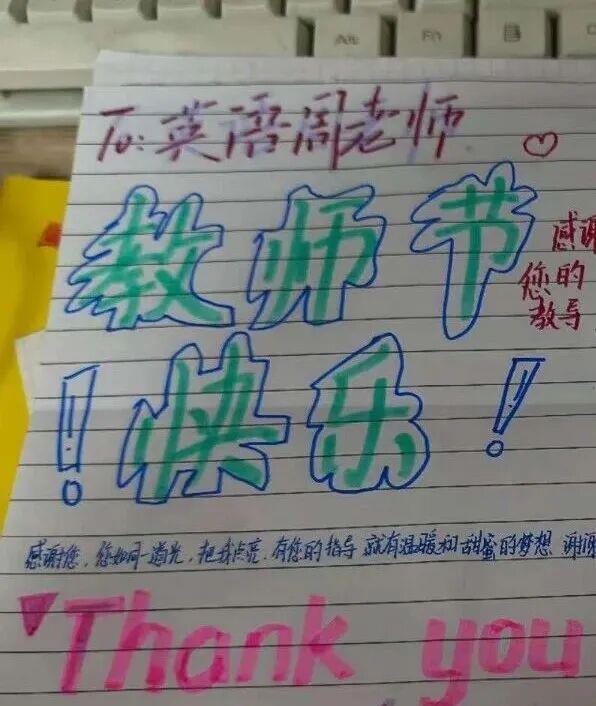 To:英语周老师
教师节
感谢
您的
教导
!快乐!
感谢您,您如同一道光,把我点亮.有您的指导 就有温暖和甜蜜的梦想.谢谢
Thank you